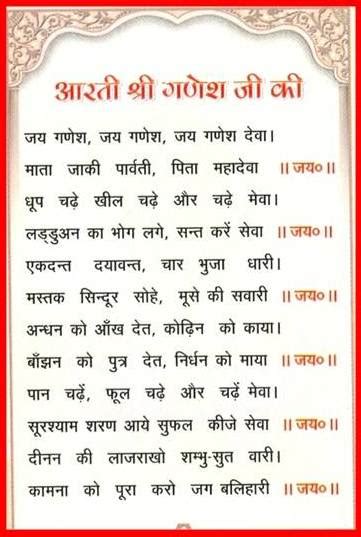 आरती श्री गणेश जी की
जय गणेश, जय गणेश, जय गणेश देवा।
माता जाकी पार्वती, पिता महादेवा ॥ जय०॥
धूप चढ़े खील चढ़े और चढ़े मेवा।
लड्डुअन का भोग लगे, सन्त करें सेवा ॥ जय०॥
एकदन्त दयावन्त, चार भुजा धारी।
मस्तक सिन्दूर सोहे, मूसे की सवारी ॥ जय०॥
अन्धन को आँख देत, कोढ़िन को काया।
बाँझन को पुत्र देत, निर्धन को माया ॥ जय०॥
पान चढ़ें, फूल चढ़े और चढ़ें मेवा।
सूरश्याम शरण आये सुफल कीजे सेवा ॥ जय०॥
दीनन की लाजराखो शम्भु-सुत वारी।
कामना को पूरा करो जग बलिहारी ॥ जय०॥